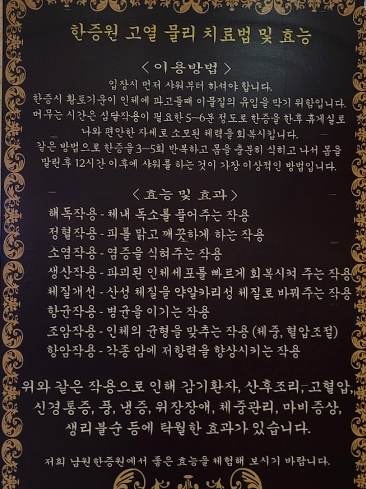 한증원 고열 물리 치료법 및 효능
< 이용방법 >
입장시 먼저 샤워부터 하셔야 합니다.
한증시 황토기운이 인체에 파고들때 이물질의 유입을 막기 위함입니다.
머무는 시간은 심달작용이 필요한 5~6분 정도로 한증을 한후 휴게실로
나와 편안한 자세로 소모된 체력을 회복시킵니다.
같은 방법으로 한증을 3~5회 반복하고 몸을 충분히 식히고 나서 몸을
말린후 12시간 이후에 샤워를 하는 것이 가장 이상적인 방법입니다.
< 효능 및 효과 >
해독작용 - 체내 독소를 풀어주는 작용
정혈작용 - 피를 맑고 깨끗하게 하는 작용
소염작용 - 염증을 식혀주는 작용
생산작용 - 파괴된 인체세포를 빠르게 회복시켜 주는 작용
체질개선 - 산성 체질을 약알카리성 체질로 바꿔주는 작용
항균작용 - 병균을 이기는 작용
조압작용 - 인체의 균형을 맞추는 작용 (체중, 혈압조절)
항암작용 - 각종 암에 저항력을 향상시키는 작용
위와 같은 작용으로 인해 감기환자, 산후조리, 고혈압,
신경통증, 풍, 냉증, 위장장애, 체중관리, 마비증상,
생리불순 등에 탁월한 효과가 있습니다.
저희 남원한증원에서 좋은 효능을 체험해 보시기 바랍니다.